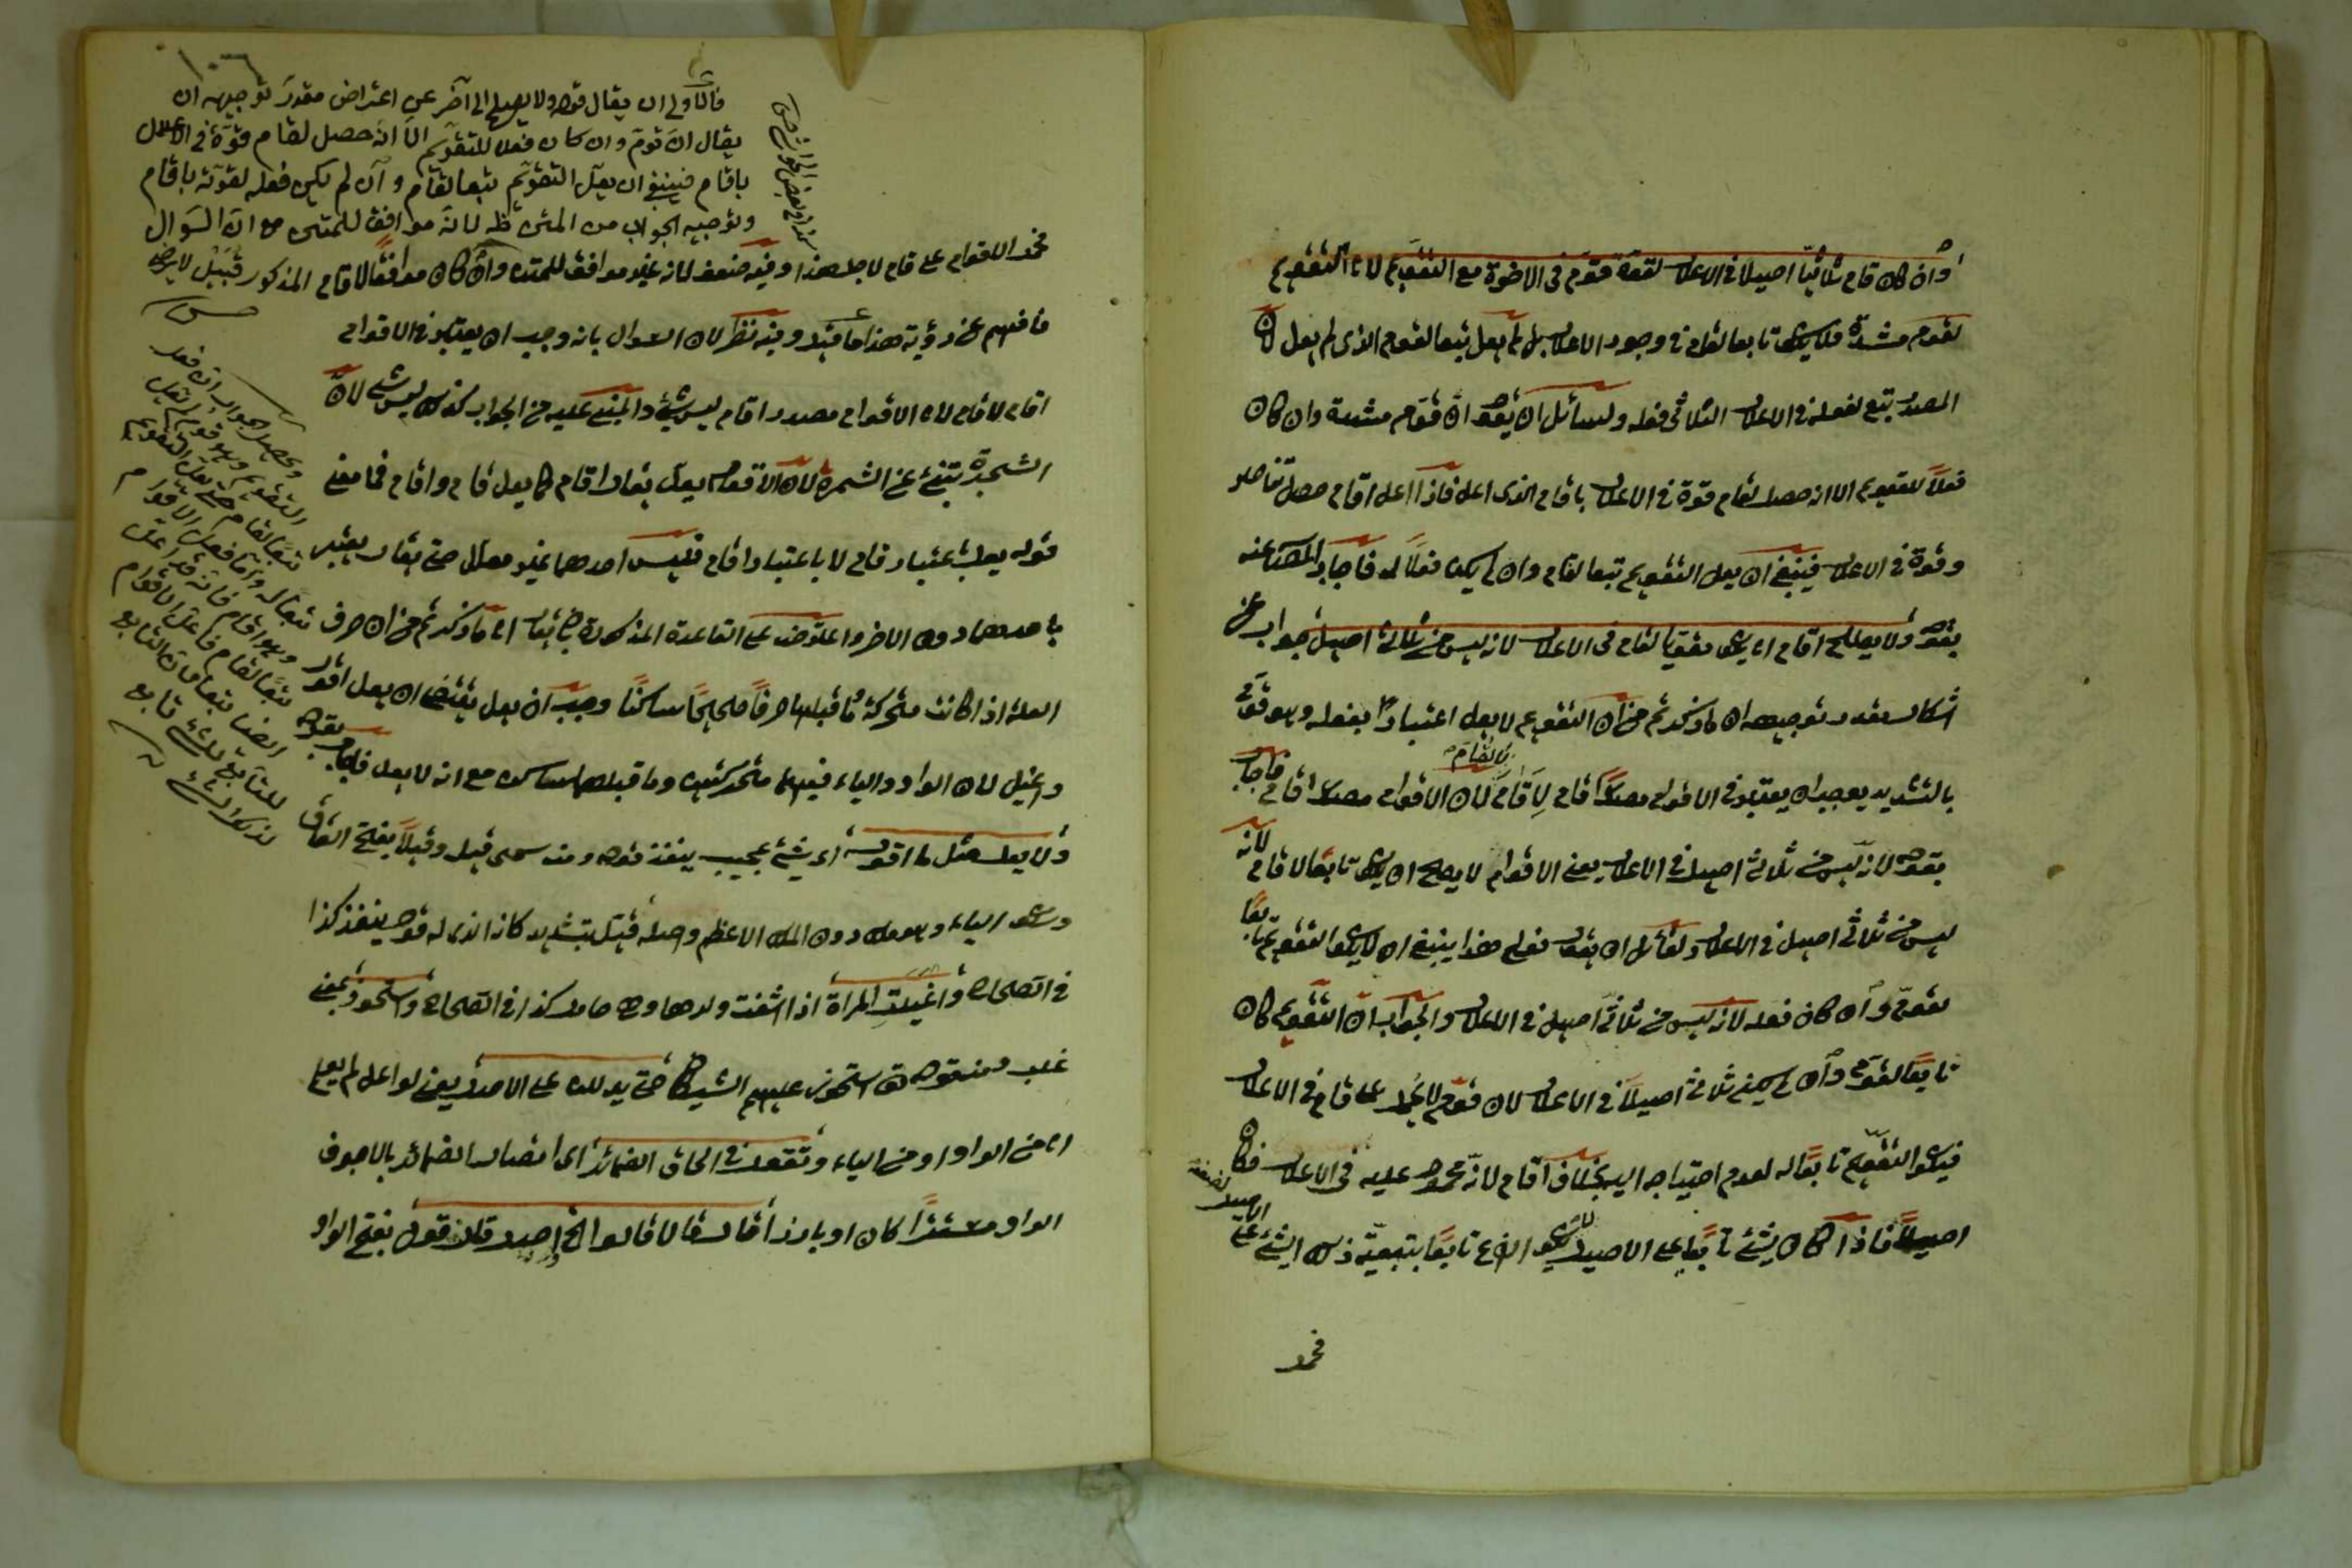 وان كان قام ثلاثيا اصيلا فى الاعلال لقوة قوّم فى الاخوة مع التقويم لان التقويم
لقوم مشددة فلا يكون تابعا لقام فى وجود الاعلال بل لم يعل تبعا لقوم الذى لم يعل لان
المصدر يتبع لفعله فى الاعلال الثلاثى فعله ولسائل ان يقول ان قوّم مشددة وان كان
فعلا للتقويم الا انه حصل لقام قوة فى الاعلال باقام الذى اعل فاذا اعل اقام حصل
وقوة فى الاعلال فينبغى ان يعل التقويم تبعا لقام وان لم يكن فعلا له فاجاب المصنف عنه
بقوله ولا يصلح اقام اى يكون مقويا لقام فى الاعلال لانه ليس من ثلاثى اصيل جواب عن
اشكال مقدر توجيهه ان ما ذكرتم من ان التقويم لا يعل اعتبارا بفعله وهو قوّم
بالتشديد يوجب ان يعتبر فى الاقوام مصدر اقام لا قام لان الاقوام مصدر اقام فاجاب
بقوله لانه ليس من ثلاثى اصيل فى الاعلال يعنى الاقوام لا يصلح ان يكون تابعا لاقام لانه
ليس من ثلاثى اصيل فى الاعلال ولقائل ان يقول فعلى هذا ينبغى ان لا يكون التقويم تابعا
لقوّم وان كان فعله لانه ليس من ثلاثى اصيل فى الاعلال والجواب ان التقويم كان
تابعا لقوّم وان لم يكن ثلاثى اصيلا فى الاعلال لان قوّم لا يحمل على قام فى الاعلال
فيكون التقويم تابعا له لعدم احتياجه اليه بخلاف اقام لانه محمول عليه فى الاعلال فكان
اصيلا فاذا كان شىء تابعا على الاصيل يكون الفرع تابعا بتبعية ذلك الشىء على
الاصيل
فحمل
فالاولى ان يقال قوله ولا يصلح الى آخر عن اعتراض مقدر توجيهه ان
يقال ان قوّم وان كان فعلا للتقويم الا انه حصل لقام قوة فى الاعلال
باقام فينبغى ان يعل التقويم تبعا لقام وان لم يكن فعله لقوته باقام
وتوجيه الجواب من المتن ظ لانه موافق للمتن مع ان السؤال
المذكور قبيل لا يرد
فحمل الاقوام على قام لاجل هذا وفيه ضعف لانه غير موافق للمتن وان كان موافقا لاقام
فافهم عن رؤية هذا ما فيه وفيه نظر لان السؤال بانه وجب ان يعتبر فى الاقوام
اقام لا قام لان الاقوام مصدر اقام ليس بشىء والمبنى عليه من الجواب كذلك ليس بشىء لان
الشجرة تنبئ عن الثمرة لان الاقوام يعل بقال اقام كما يعل قام واقام فما معنى
قوله يعل باعتبار قام لا باعتبار اقام فليس احدهما غير معل حتى يقال يعتبر
باحدهما دون الاخر واعترض على القاعدة المذكورة بان يقال ان ما ذكرتم من ان حرف
العلة اذا كانت متحركة وما قبلها حرفا صحيحا ساكنا وجب ان يعل يقتضى ان يعل اقول
واغيل لان الواو والياء فيهما متحركتين وما قبلهما ساكن مع انه لا يعل فاجاب بقوله
ولا يعل مثل ما اقوله اى شىء عجيب ينفذ قوله ومنه سمى قيل وقيلا بفتح القاف
وسكون الياء وهو ملك دون الملك الاعظم واصله قيّل بتشديد كان الذى له قول ينفذ كذا
فى الصحاح واغيلت المرأة اذا اشفت ولدها وهى حامل كذا فى الصحاح واستحوذ بمعنى
غلب ومنه قوله تعالى استحوذ عليهم الشيطان حتى يدللن على الاصل يعنى لو اعل لم يعلم
اى من الواو او من الياء وتقول فى الحاق الضمائر اى اتصال الضمائر بالاجوف
الواو مستترا كان او بارزا قال قالا قالوا الخ اصل قال قول بفتح الواو
وتحصل الجواب ان فعل
التقويم وهو قوّم لم يعل
تبعا لقام حتى يعل التقويم
تبعا له واما فعل الاقوام
وهو اقام فانه قد اعل
تبعا لقام فاعل الاقوام
ايضا تبعا فان التابع
للتابع للشىء تابع
لذلك الشىء